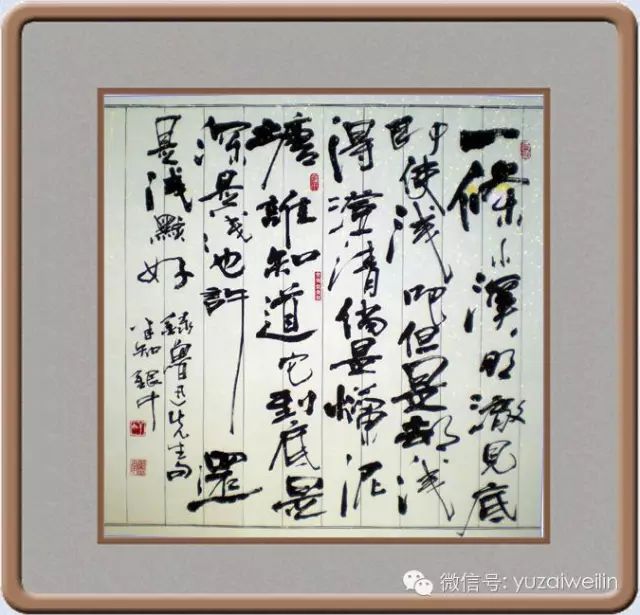 一條小溪明澈見底
即使浅吧但是却浅
得澄清倘是爛泥
塘誰知道它到底是
深是浅也許還
是浅點好
錄魯迅先生句
微信号: yuzaiweilin